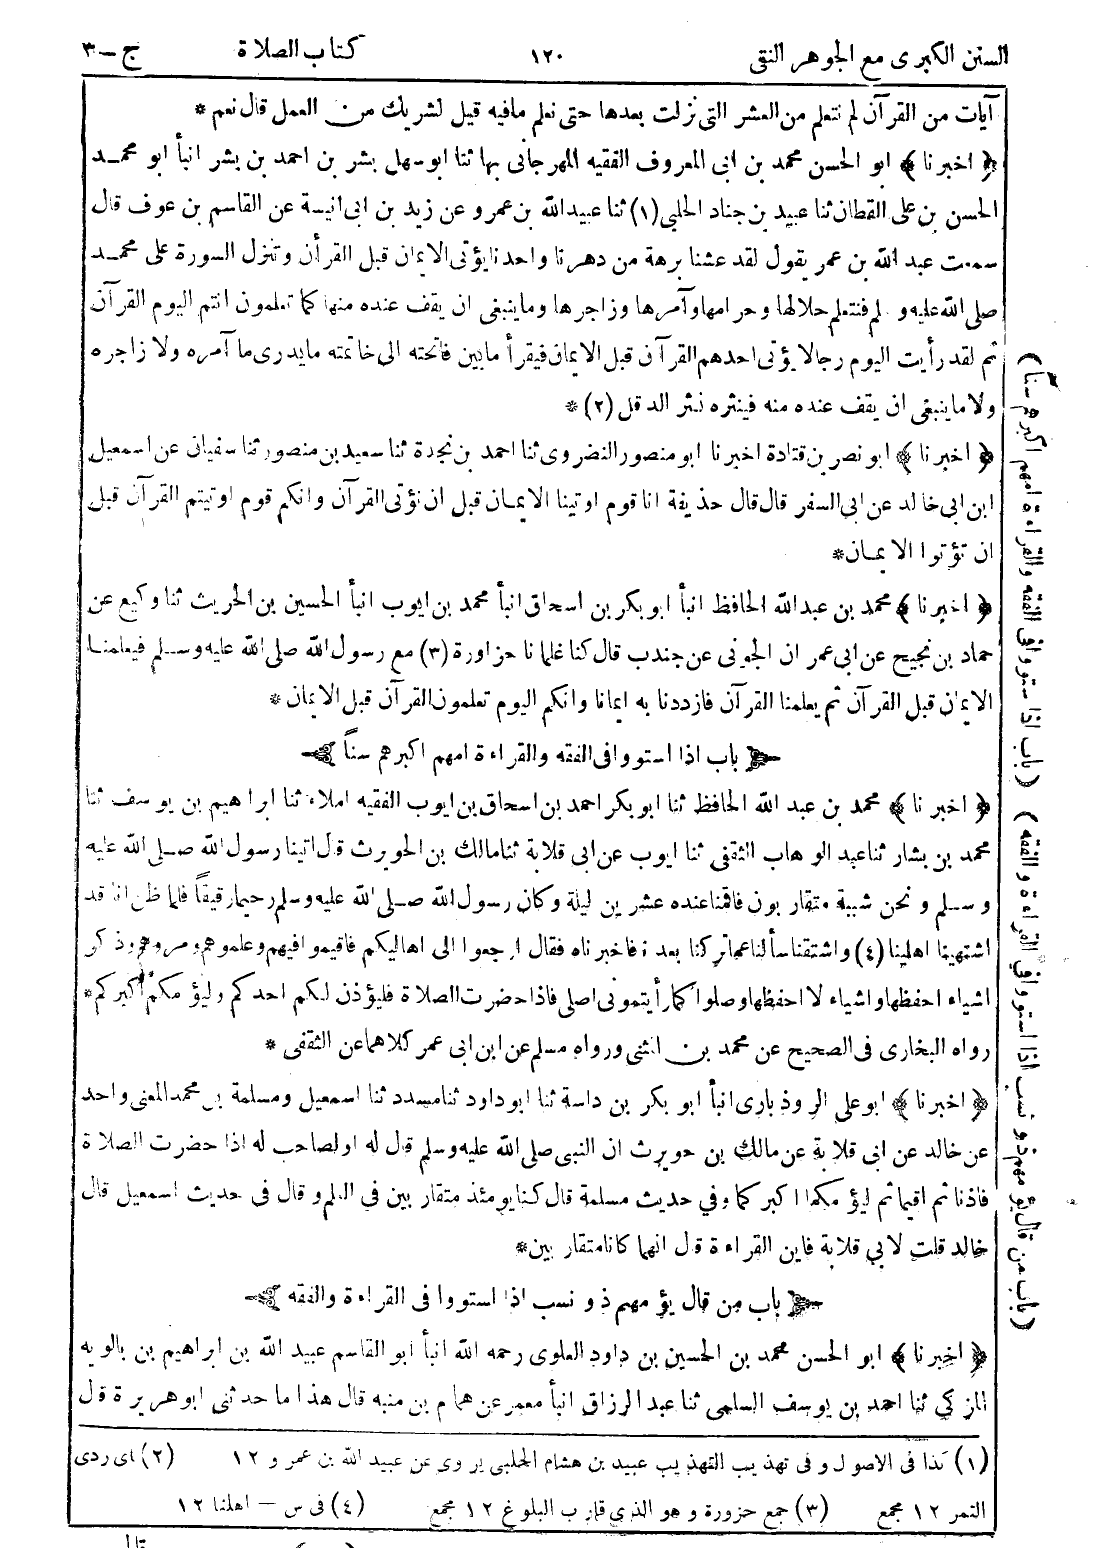 السنن الكبرى مع الجوهر النقى ١٢٠ كتاب الصلاة ج - ٣
آيات من القرآن لم نتعلم من العشر التى نزلت بعدها حتى نعلم مافيه قيل لشريك من العمل قال نعم *
﴿ اخبرنا ﴾ ابو الحسن محمد بن ابى المعروف الفقيه المهرجانى بها ثنا ابو سهل بشر بن احمد بن بشر انبأ ابو محمد
الحسن بن على القطان ثنا عبيد بن جناد الحلبى (١) ثنا عبيد الله بن عمرو عن زيد بن ابى انيسة عن القاسم بن عوف قال
سمعت عبد الله بن عمر يقول لقد عشنا برهة من دهرنا واحدنا يؤتى الايمان قبل القرأن وتنزل السورة على محمد
صلى الله عليه و لم فنتعلم حلالها وحرامها وآمرها وزاجرها وماينبغى ان يقف عنده منها كما تعلمون انتم اليوم القرآن
ثم لقد رأيت اليوم رجالا يؤتى احدهم القرآن قبل الايمان فيقرأ مابين فاتحته الى خاتمته مايدرى ما آمره ولا زاجره
ولا ماينبغى ان يقف عنده منه فينثره نثر الدقل (٢) *
﴿ اخبرنا ﴾ ابو نصر بن قتادة اخبرنا ابو منصور النضروى ثنا احمد بن نجدة ثنا سعيد بن منصور ثنا سفيان عن اسمعيل
ابن ابى خالد عن ابى السفر قال قال حذيفة انا قوم اوتينا الايمان قبل ان نؤتى القرآن وانكم قوم اوتيتم القرآن قبل
ان تؤتوا الايمان *
﴿ اخبرنا ﴾ محمد بن عبد الله الحافظ انبأ ابو بكر بن اسحاق انبأ محمد بن ايوب انبأ الحسين بن الحريث ثنا وكيع عن
حماد بن نجيح عن ابى عمران الجونى عن جندب قال كنا غلمانا حزاورة (٣) مع رسول الله صلى الله عليه وسلم فيعلمنا
الايمان قبل القرآن ثم يعلمنا القرآن فازددنا به ايمانا وانكم اليوم تعلمون القرآن قبل الايمان *
باب اذا استووا فى الفقه والقراءة امهم اكبرهم سناً
﴿ اخبرنا ﴾ محمد بن عبد الله الحافظ ثنا ابو بكر احمد بن اسحاق بن ايوب الفقيه املاء ثنا ابراهيم بن يوسف ثنا
محمد بن بشار ثنا عبد الوهاب الثقفى ثنا ايوب عن ابى قلابة ثنا مالك بن الحويرث قال اتينا رسول الله صلى الله عليه
وسلم ونحن شببة متقاربون فاقمنا عنده عشرين ليلة وكان رسول الله صلى الله عليه وسلم رحيما رقيقاً فلما ظن انا قد
اشتهينا اهلينا (٤) واشتقنا سألنا عما تركنا بعدنا فاخبرناه فقال ارجعوا الى اهاليكم فاقيموا فيهم وعلموهم ومروهم وذكر
اشياء احفظها واشياء لا احفظها وصلوا كما رأيتمونى اصلى فاذا حضرت الصلاة فليؤذن لكم احدكم وليؤمكم اكبركم *
رواه البخارى فى الصحيح عن محمد بن المثنى ورواه مسلم عن ابن ابى عمر كلاهما عن الثقفى *
﴿ اخبرنا ﴾ ابو على الروذبارى انبأ ابو بكر بن داسة ثنا ابو داود ثنا مسدد ثنا اسمعيل ومسلمة بن محمد المعنى واحد
عن خالد عن ابى قلابة عن مالك بن حويرث ان النبى صلى الله عليه وسلم قال له او لصاحب له اذا حضرت الصلاة
فاذنا ثم اقيما ثم ليؤمكما اكبركما وفي حديث مسلمة قال كنا يومئذ متقاربين فى العلم وقال فى حديث اسمعيل قال
خالد قلت لابي قلابة فاين القراءة قال انهما كانا متقاربين *
باب من قال يؤمهم ذو نسب اذا استووا فى القراءة والفقه
﴿ اخبرنا ﴾ ابو الحسن محمد بن الحسين بن داود العلوى رحمه الله انبأ ابو القاسم عبيد الله بن ابراهيم بن بالويه
المزكي ثنا احمد بن يوسف السلمى ثنا عبد الرزاق انبأ معمر عن همام بن منبه قال هذا ما حدثنى ابو هريرة قال
(١) كذا فى الاصول و فى تهذيب التهذيب عبيد بن هشام الحلبى يروى عن عبيد الله بن عمرو ١٢ (٢) اى ردى
التمر ١٢ مجمع (٣) جمع حزورة و هو الذي قارب البلوغ ١٢ مجمع (٤) فى س - اهلنا ١٢
(باب اذا استووا فى الفقه والقراءة امهم اكبرهم سناً)
(باب من قال يؤمهم ذو نسب اذا استووا فى القراءة والفقه)